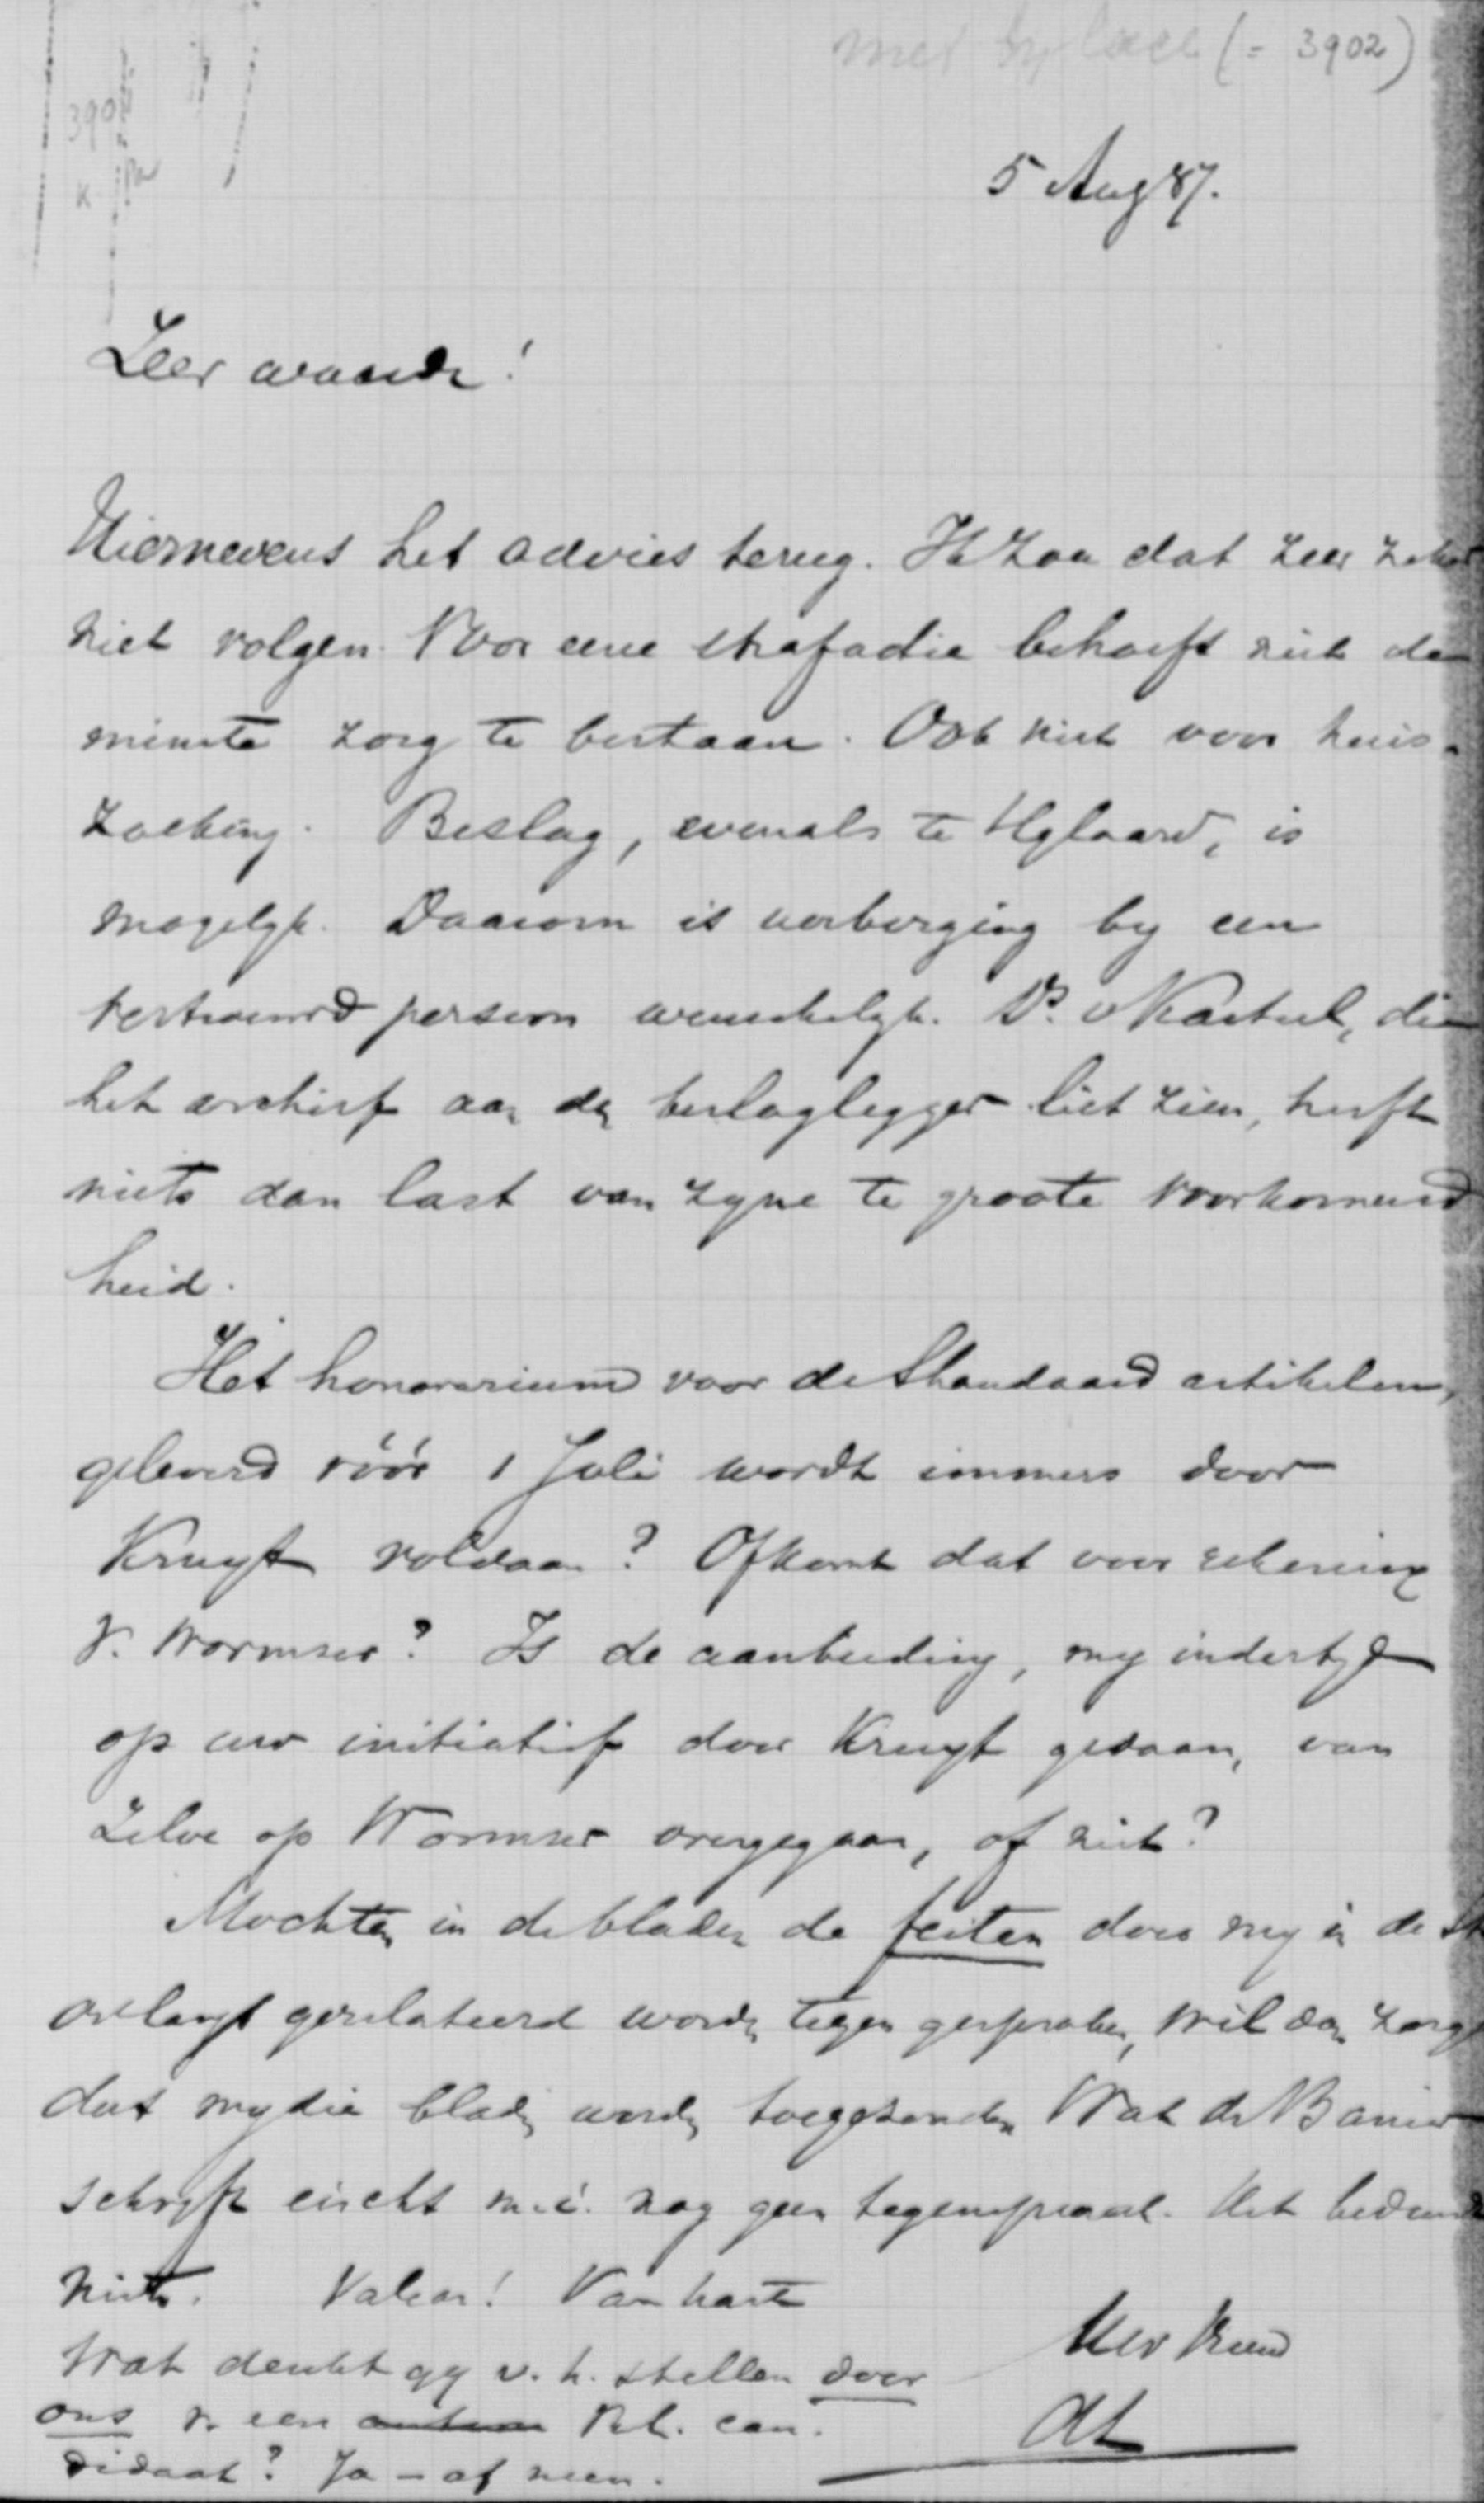 met bijlage (= 3902)
5 Aug 87.
Zeer waarde!
Hiernevens het advies terug. Ik zou dat zeer zeker
niet volgen. Voor eene strafactie behoeft niet de
minste zorg te bestaan. Ook niet voor huis-
zoeking. Beslag, evenals te Hylaard, is
mogelyk. Daarom is verberging by een
vertrouwd persoon wenschelyk. Ds. v Kasteel, die
het archief aan den beslaglegger liet zien, heeft
niets dan last van zyne te groote voorkomend
heid.
Het honorarium voor de Standaard artikelen,
geleverd vóór 1 Juli wordt immers door
Kruyt voldaan? Of komt dat voor rekening
v. Wormser? Is de aanbieding, my indertyd
op uw initiatief door Kruyt gedaan, van
zelve op Wormser overgegaan, of niet?
Mochten in de bladen de feiten door my in de St
onlangs gerelateerd worden tegengesproken, wil dan zorgen
dat my die bladen worden toegezonden. Wat de Banier
schryft eischt m.i. nog geen tegenspraak. Het beduidt
niets. Valeas! Van harte
Uw Vriend
Wat denkt gy v. h. stellen door
ons v. een Rel. can-
didaat? Ja – of neen.